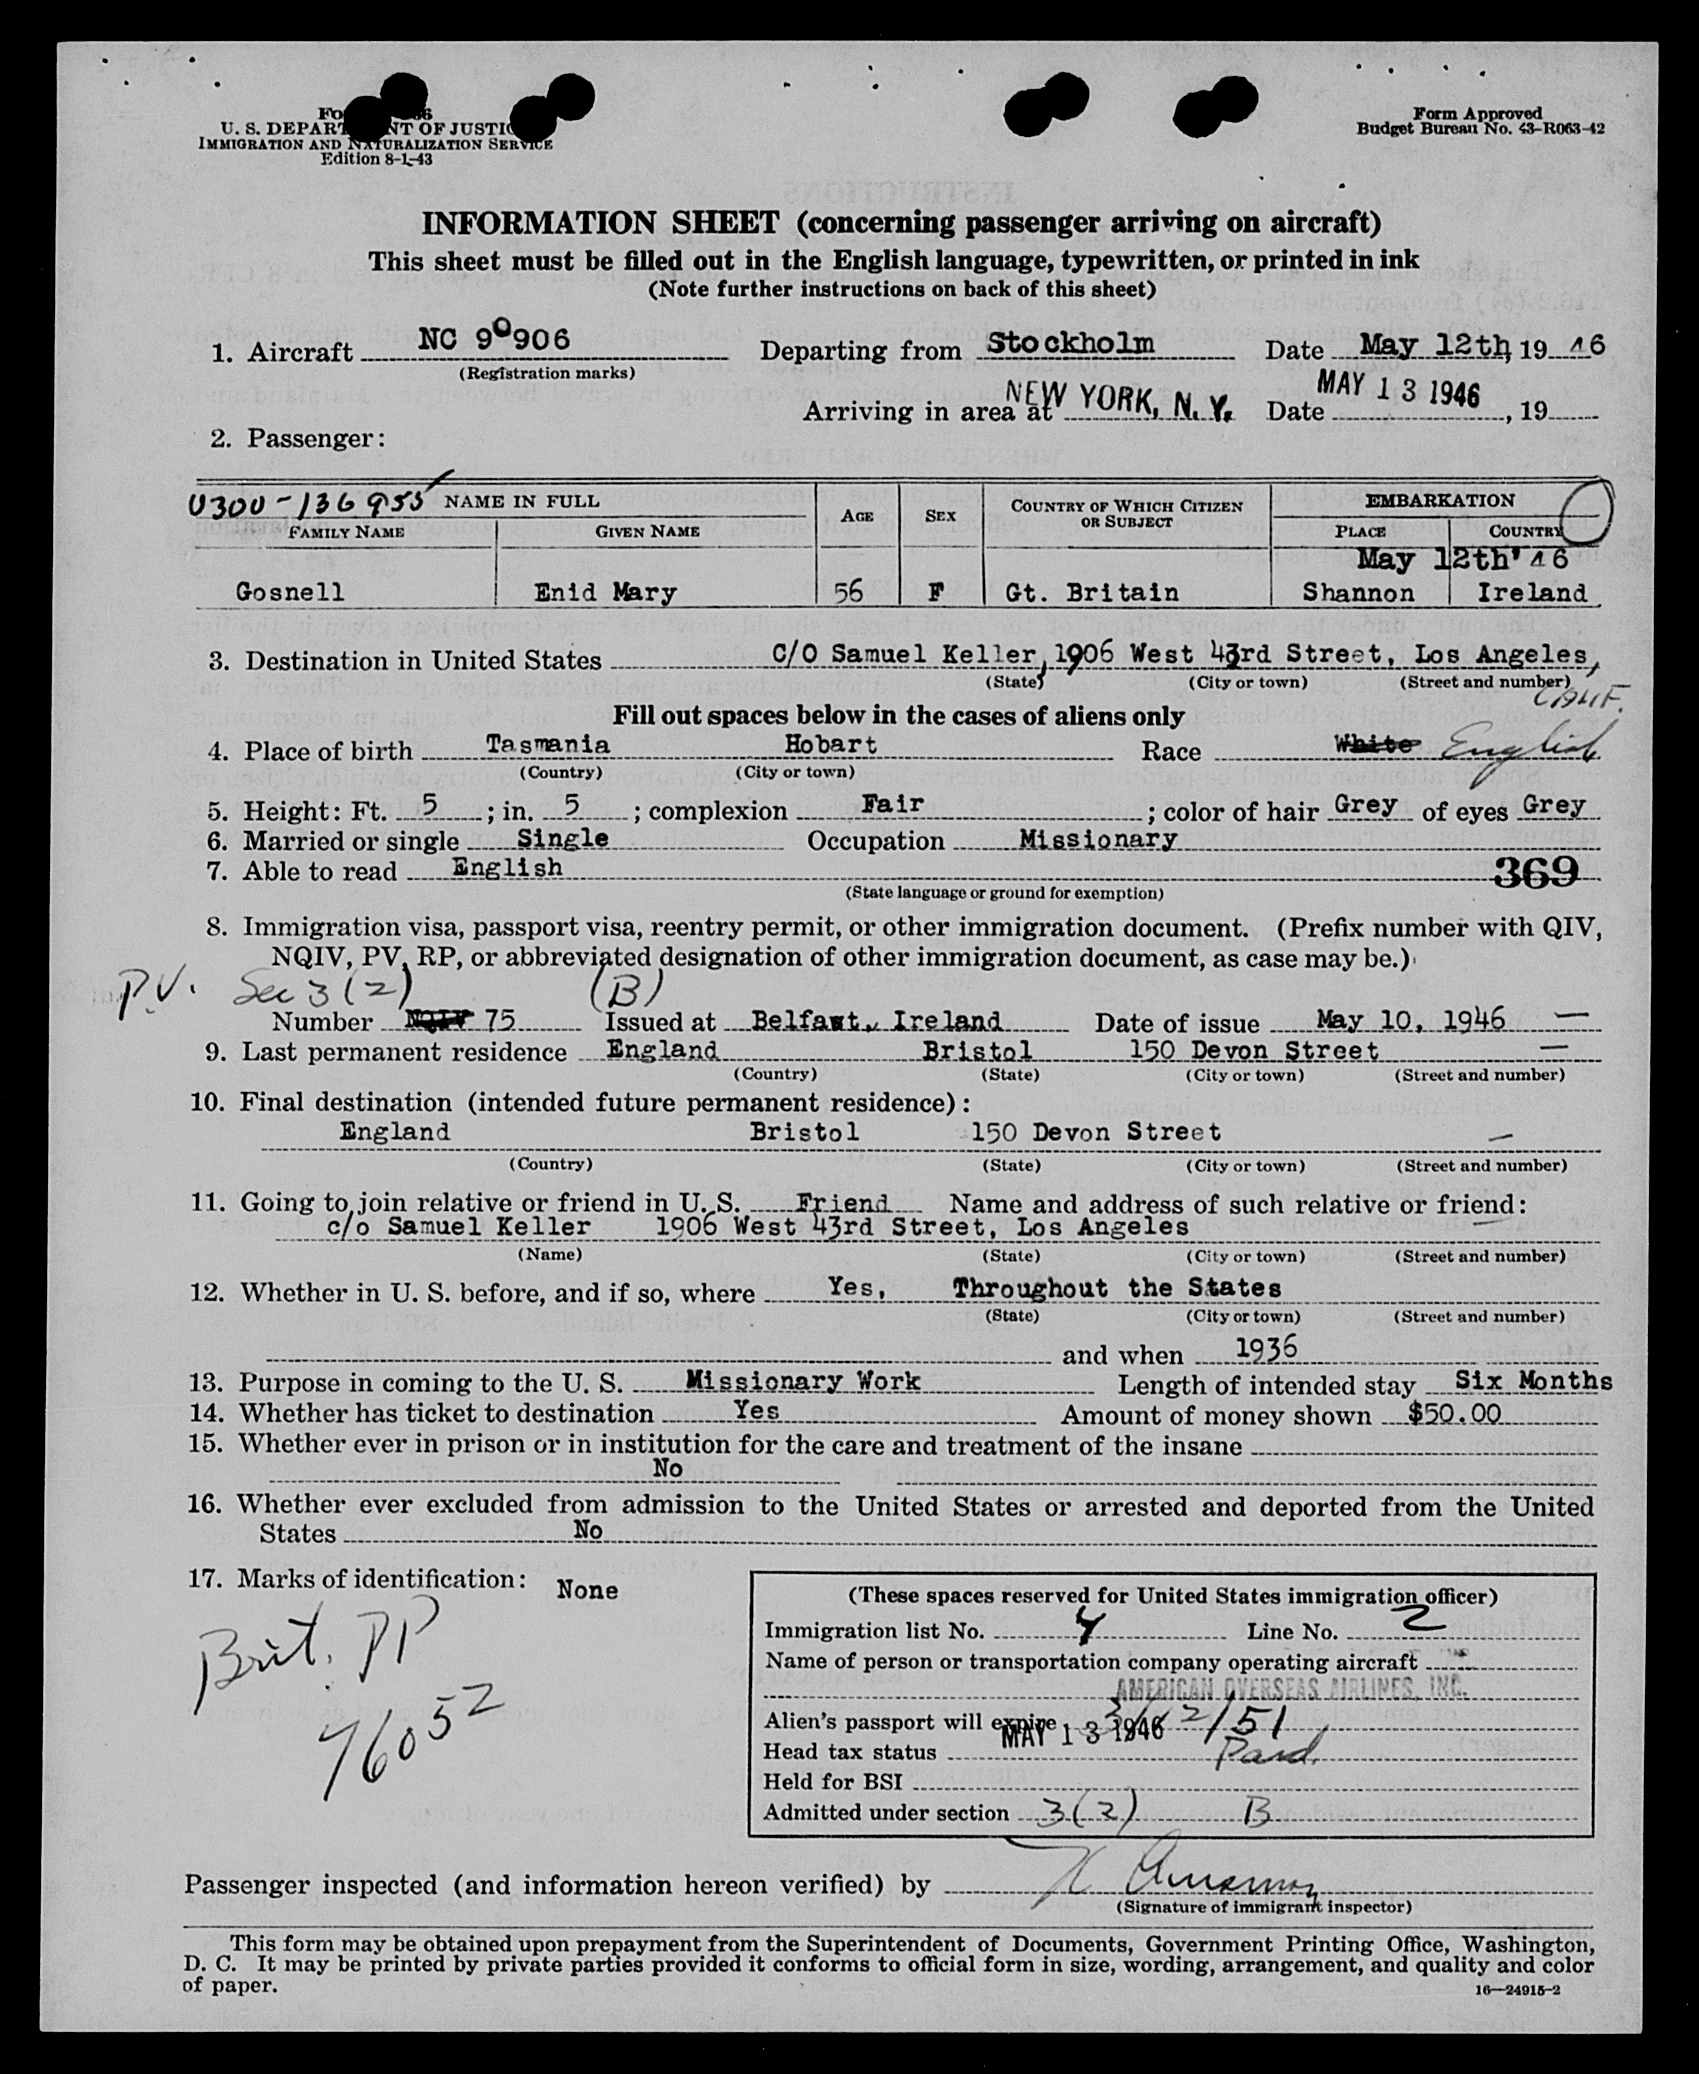 U. S. DEPARTMENT OF JUSTICE
IMMIGRATION AND NATURALIZATION SERVICE
Edition 8-1-43
Form Approved
Budget Bureau No. 43-R063-42
INFORMATION SHEET (concerning passenger arriving on aircraft)
This sheet must be filled out in the English language, typewritten, or printed in ink
(Note further instructions on back of this sheet)
1. Aircraft NC 90906 Departing from Stockholm Date May 12th, 1946
(Registration marks)
Arriving in area at NEW YORK, N. Y. Date MAY 13 1946, 19
2. Passenger:
0300-136955 NAME IN FULL AGE SEX COUNTRY OF WHICH CITIZEN OR SUBJECT EMBARKATION
FAMILY NAME GIVEN NAME PLACE COUNTRY
May 12th' 46
Gosnell Enid Mary 56 F Gt. Britain Shannon Ireland
3. Destination in United States C/O Samuel Keller, 1906 West 43rd Street, Los Angeles,
(State) (City or town) (Street and number) CALIF.
Fill out spaces below in the cases of aliens only
4. Place of birth Tasmania Hobart Race White English
(Country) (City or town)
5. Height: Ft. 5 ; in. 5 ; complexion Fair ; color of hair Grey of eyes Grey
6. Married or single Single Occupation Missionary
7. Able to read English 369
(State language or ground for exemption)
8. Immigration visa, passport visa, reentry permit, or other immigration document. (Prefix number with QIV,
NQIV, PV, RP, or abbreviated designation of other immigration document, as case may be.)
P.V. Sec 3 (2) (B)
Number NQIV 75 Issued at Belfast, Ireland Date of issue May 10, 1946 —
9. Last permanent residence England Bristol 150 Devon Street —
(Country) (State) (City or town) (Street and number)
10. Final destination (intended future permanent residence):
England Bristol 150 Devon Street —
(Country) (State) (City or town) (Street and number)
11. Going to join relative or friend in U. S. Friend Name and address of such relative or friend:
c/o Samuel Keller 1906 West 43rd Street, Los Angeles
(Name) (State) (City or town) (Street and number)
12. Whether in U. S. before, and if so, where Yes, Throughout the States
(State) (City or town) (Street and number)
and when 1936
13. Purpose in coming to the U. S. Missionary Work Length of intended stay Six Months
14. Whether has ticket to destination Yes Amount of money shown $50.00
15. Whether ever in prison or in institution for the care and treatment of the insane
No
16. Whether ever excluded from admission to the United States or arrested and deported from the United
States No
17. Marks of identification: None
Brit. PP
76052
(These spaces reserved for United States immigration officer)
Immigration list No. 4 Line No. 2
Name of person or transportation company operating aircraft
AMERICAN OVERSEAS AIRLINES, INC.
Alien's passport will expire 3/12/51
MAY 13 1946
Head tax status Paid
Held for BSI
Admitted under section 3(2) B
Passenger inspected (and information hereon verified) by
(Signature of immigrant inspector)
This form may be obtained upon prepayment from the Superintendent of Documents, Government Printing Office, Washington,
D. C. It may be printed by private parties provided it conforms to official form in size, wording, arrangement, and quality and color
of paper.
16—24915-2